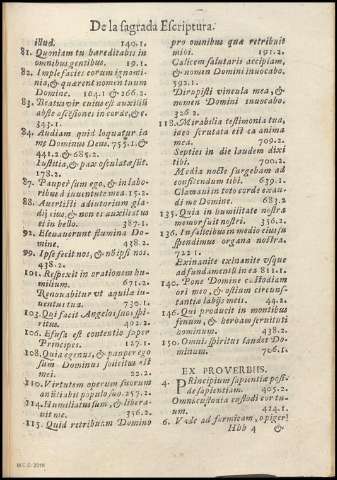 De la sagrada Escriptura.
illud. 140.1.
81. Quoniam tu hæreditabis in
omnibus gentibus. 19.1.
82. Imple facies eorum ignomi-
nia, & quærent nomen tuum
Domine. 104.1 & 266.2.
83. Beatus vir cuius est auxiliũ
abs te ascẽsiones in corde, &c.
343.1.
84. Audiam quid loquatur in
me Dominus Deus. 755.1. &
441.2 & 685.2.
Iustitia, & pax osculatæ sũt.
178.2.
87. Pauper sum ego, & in labo-
ribus à iuuentute mea. 15.2.
88. Auertisti adiutorium gla-
dij eius, & non es auxiliatus
ei in bello. 387.1.
92. Eleuauerunt flumina Do-
mine. 438.2.
99. Ipse fecit nos, & nõ ipsi nos.
438.2.
101. Respexit in orationem hu-
milium. 671.2.
Renouabitur vt aquila iu-
uentus tua. 730.1.
103. Qui facit Angelos suos spi-
ritus. 402.2.
106. Effusa est contentio super
Principes. 127.1.
108. Quia egenus, & pauper ego
sum Dominus solicitus est
mei. 22.2.
110. Virtutem operum suorum
antiabit populo suo. 257.2.
114. Humiliatus sum, & libera-
uit me. 356.2.
115. Quid retribuam Domino
pro omnibus quæ retribuit
mihi. 191.2.
Calicem salutaris accipiam,
& nomen Domini inuocabo.
592.1.
Dirupisti vincula mea, &
nomen Domini inuocabo.
326.2.
118. Mirabilia testimonia tua,
ideo scrutata est ea anima
mea. 709.2.
Septies in die laudem dixi
tibi. 700.2.
Media nocte surgebam ad
confitendum tibi. 639.1.
Clamaui in toto corde exau-
di me Domine. 683.2.
135. Quia in humilitate nostra
memor fuit nostri. 336.2.
136. In salicibus in medio eius su
spendimus organa nostra.
722.1.
Exinanite exinanite vsque
ad fundamentũ in ea 811.1.
140. Pone Domine custodiam
ori meo, & ostium circuns-
tantiæ labijs meis. 44.2.
146. Qui producit in montibus
fœnum, & herbam seruituti
hominum. 438.2.
150. Omnis spiritus laudet Do-
minum. 706.1.
EX PROVERBIIS.
4. Principium sapientiæ possi-
de sapientiam. 405.2.
Omni custodia custodi cor tu-
um. 424.1.
6. Vade ad formicam, o piger!
Hhh 4 &